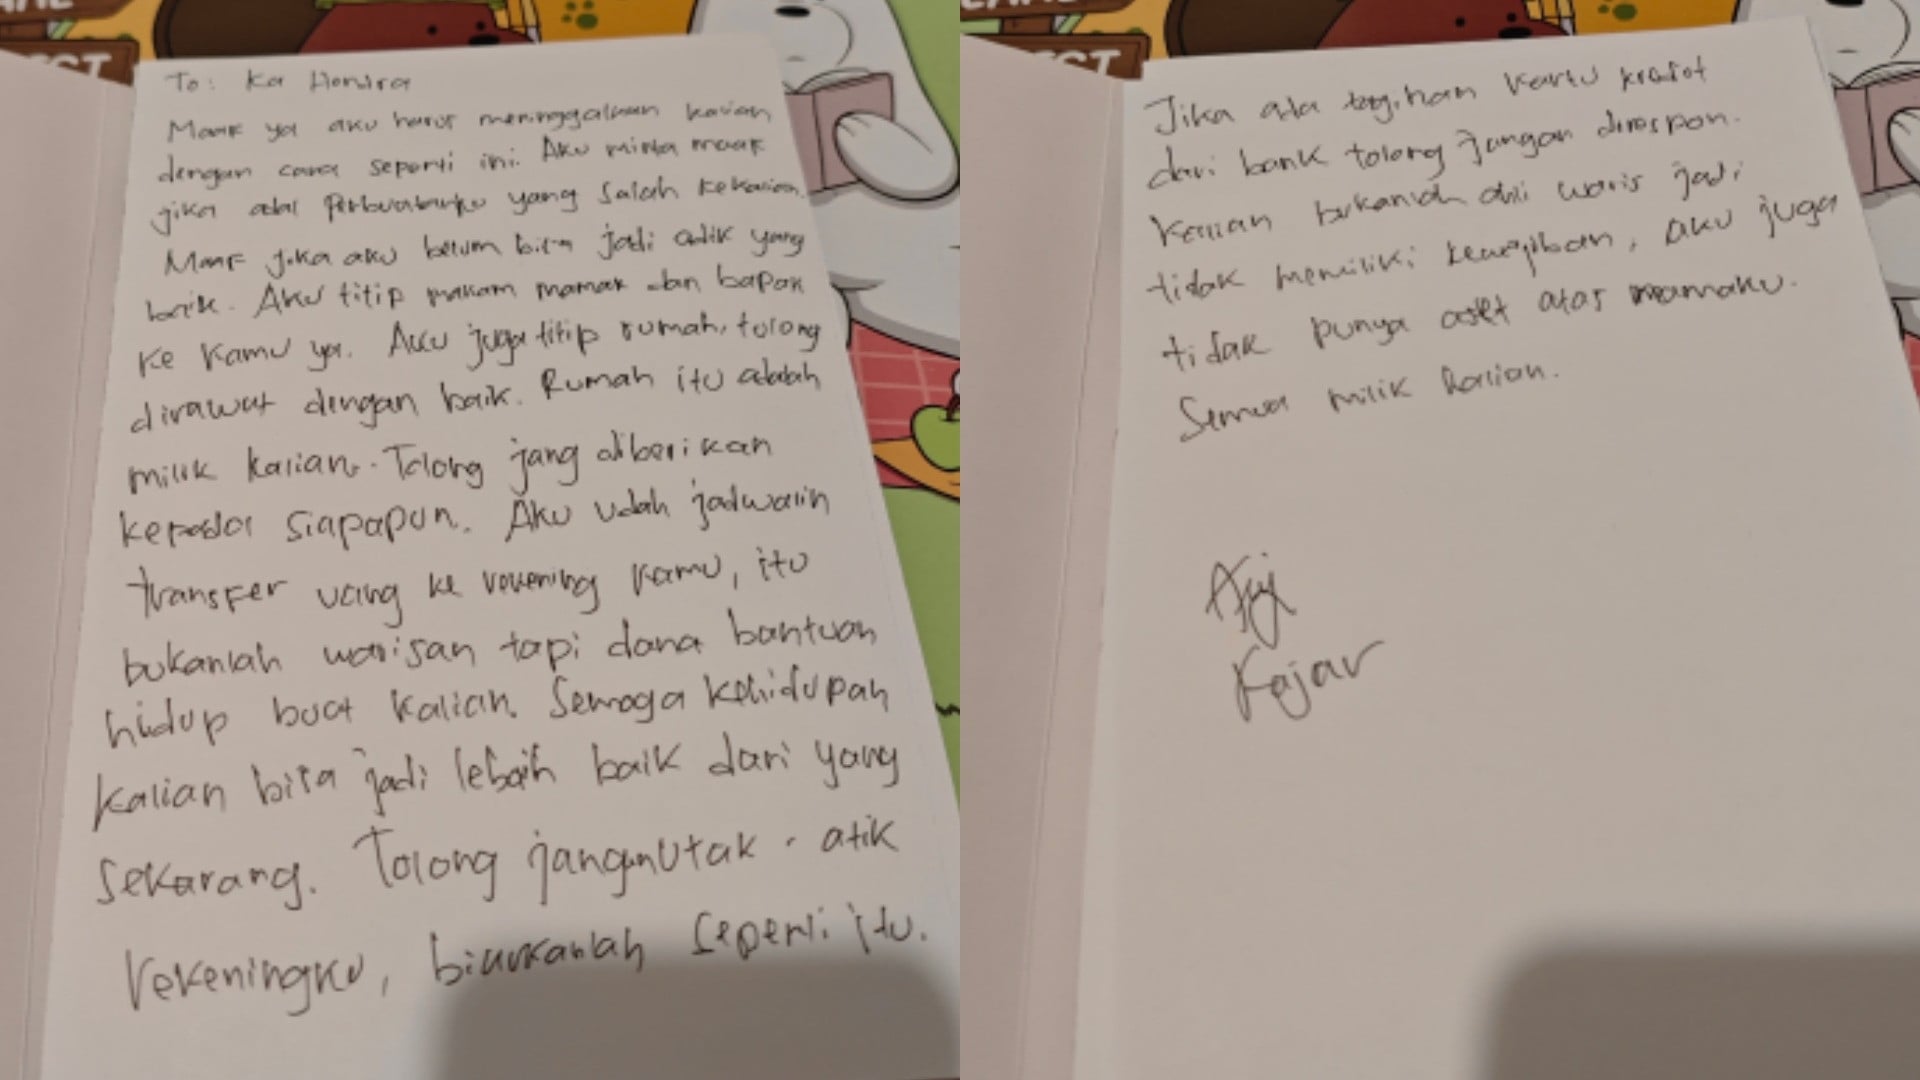 To: Ka Hendra
Maaf ya aku harus meninggalkan kalian
dengan cara seperti ini. Aku minta maaf
jika ada perbuatanku yang salah kekalian.
Maaf jika aku belum bisa jadi adik yang
baik. Aku titip makam mamak dan bapak
ke kamu ya. Aku juga titip rumah, tolong
dirawat dengan baik. Rumah itu adalah
milik kalian. Tolong jang diberikan
kepada siapapun. Aku udah jadwalin
transfer uang ke rekening kamu, itu
bukanlah warisan tapi dana bantuan
hidup buat kalian. Semoga kehidupan
kalian bisa jadi lebih baik dari yang
sekarang. Tolong jangan utak-atik
rekeningku, biarkanlah seperti itu.
Jika ada tagihan kartu kredit
dari bank tolong jangan direspon.
Kalian bukanlah ahli waris jadi
tidak memiliki kewajiban, aku juga
tidak punya aset atas namaku.
Semua milik kalian.
Fajar